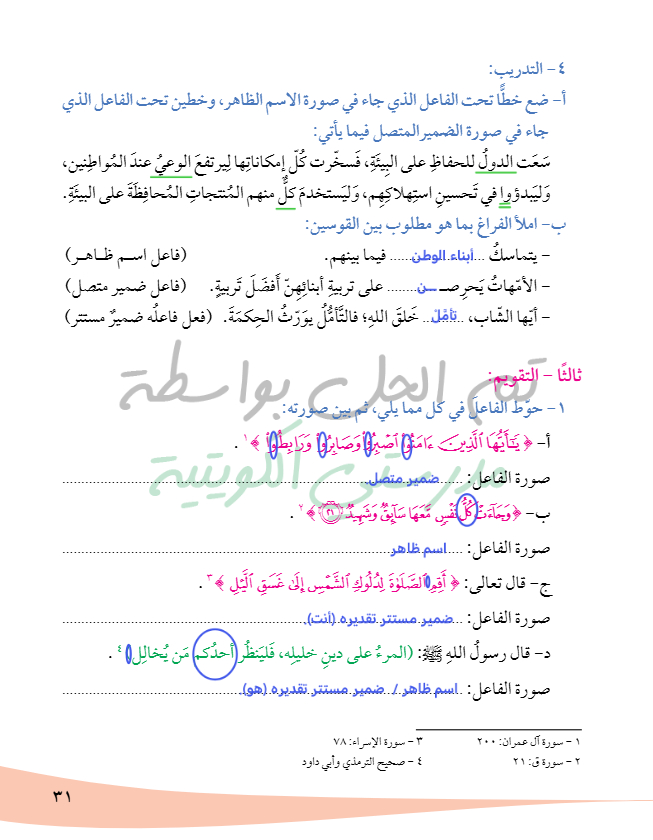 ٤- التدريب:
أ- ضع خطًّا تحت الفاعل الذي جاء في صورة الاسم الظاهر، وخطين تحت الفاعل الذي
جاء في صورة الضمير المتصل فيما يأتي:
سَعَت الدولُ للحفاظِ على البِيئَةِ، فَسخّرت كُلّ إمكاناتِها لِيرتفعَ الوعيُ عندَ المُواطِنين،
وَليَبدؤوا في تَحسينِ استِهلاكِهِم، وَليَستخدمَ كلٌّ منهم المُنتجاتِ المُحافِظَةَ على البيئَةِ.
ب- املأ الفراغ بما هو مطلوب بين القوسين:
- يتماسكُ ...أبناء الوطن...... فيما بينهم. (فاعل اسم ظـاهـر)
- الأمّهاتُ يَحرِصـ ـــن........ على تربيةِ أبنائِهنّ أفضَلَ تَربيةٍ. (فاعل ضمير متصل)
- أيّها الشّاب، ........تأمَّلْ.. خَلقَ اللهِ؛ فالتَّأمُّلُ يورّثُ الحِكمَةَ. (فعل فاعلُه ضميرٌ مستتر)
تم الحل بواسطة
ثالثًا - التقويم:
١- حوّط الفاعلَ في كل مما يلي، ثم بين صورته:
أ- ﴿ يَٰٓأَيُّهَا ٱلَّذِينَ ءَامَنُواْ ٱصۡبِرُواْ وَصَابِرُواْ وَرَابِطُواْ ﴾ ١ .
مدرستي الكويتية
صورة الفاعل: ......ضمير متصل......
ب- ﴿ وَجَآءَتۡ كُلُّ نَفۡسٖ مَّعَهَا سَآئِقٞ وَشَهِيدٞ ٢١ ﴾ ٢ .
صورة الفاعل: ....اسم ظاهر......
ج- قال تعالى: ﴿ أَقِمِ ٱلصَّلَوٰةَ لِدُلُوكِ ٱلشَّمۡسِ إِلَىٰ غَسَقِ ٱلَّيۡلِ ﴾ ٣ .
صورة الفاعل: ...ضمير مستتر تقديره (أنت)......
د- قال رسولُ اللهِ ﷺ: (المرءُ على دينِ خليلِه، فَليَنظُر أحدُكم مَن يُخالِل) ٤ .
صورة الفاعل: اسم ظاهر / ضمير مستتر تقديره (هو)......
١ - سورة آل عمران: ٢٠٠
٢ - سورة ق: ٢١
٣ - سورة الإسراء: ٧٨
٤ - صحيح الترمذي وأبي داود
٣١